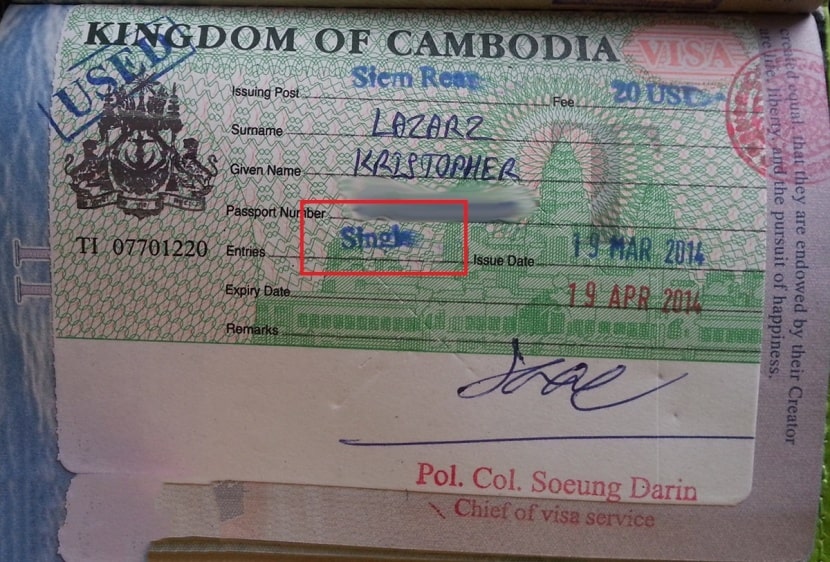 KINGDOM OF CAMBODIA VISA
USED
Issuing Post Siem Reap Fee 20 US
Surname LAZARZ
Given Name KRISTOPHER
Passport Number
TI 07701220
Entries Single Issue Date 19 MAR 2014
Expiry Date 19 APR 2014
Remarks
Pol. Col. Soeung Darin
Chief of visa service
created equal, that they are endowed by their Creator
are life, liberty, and the pursuit of happiness.